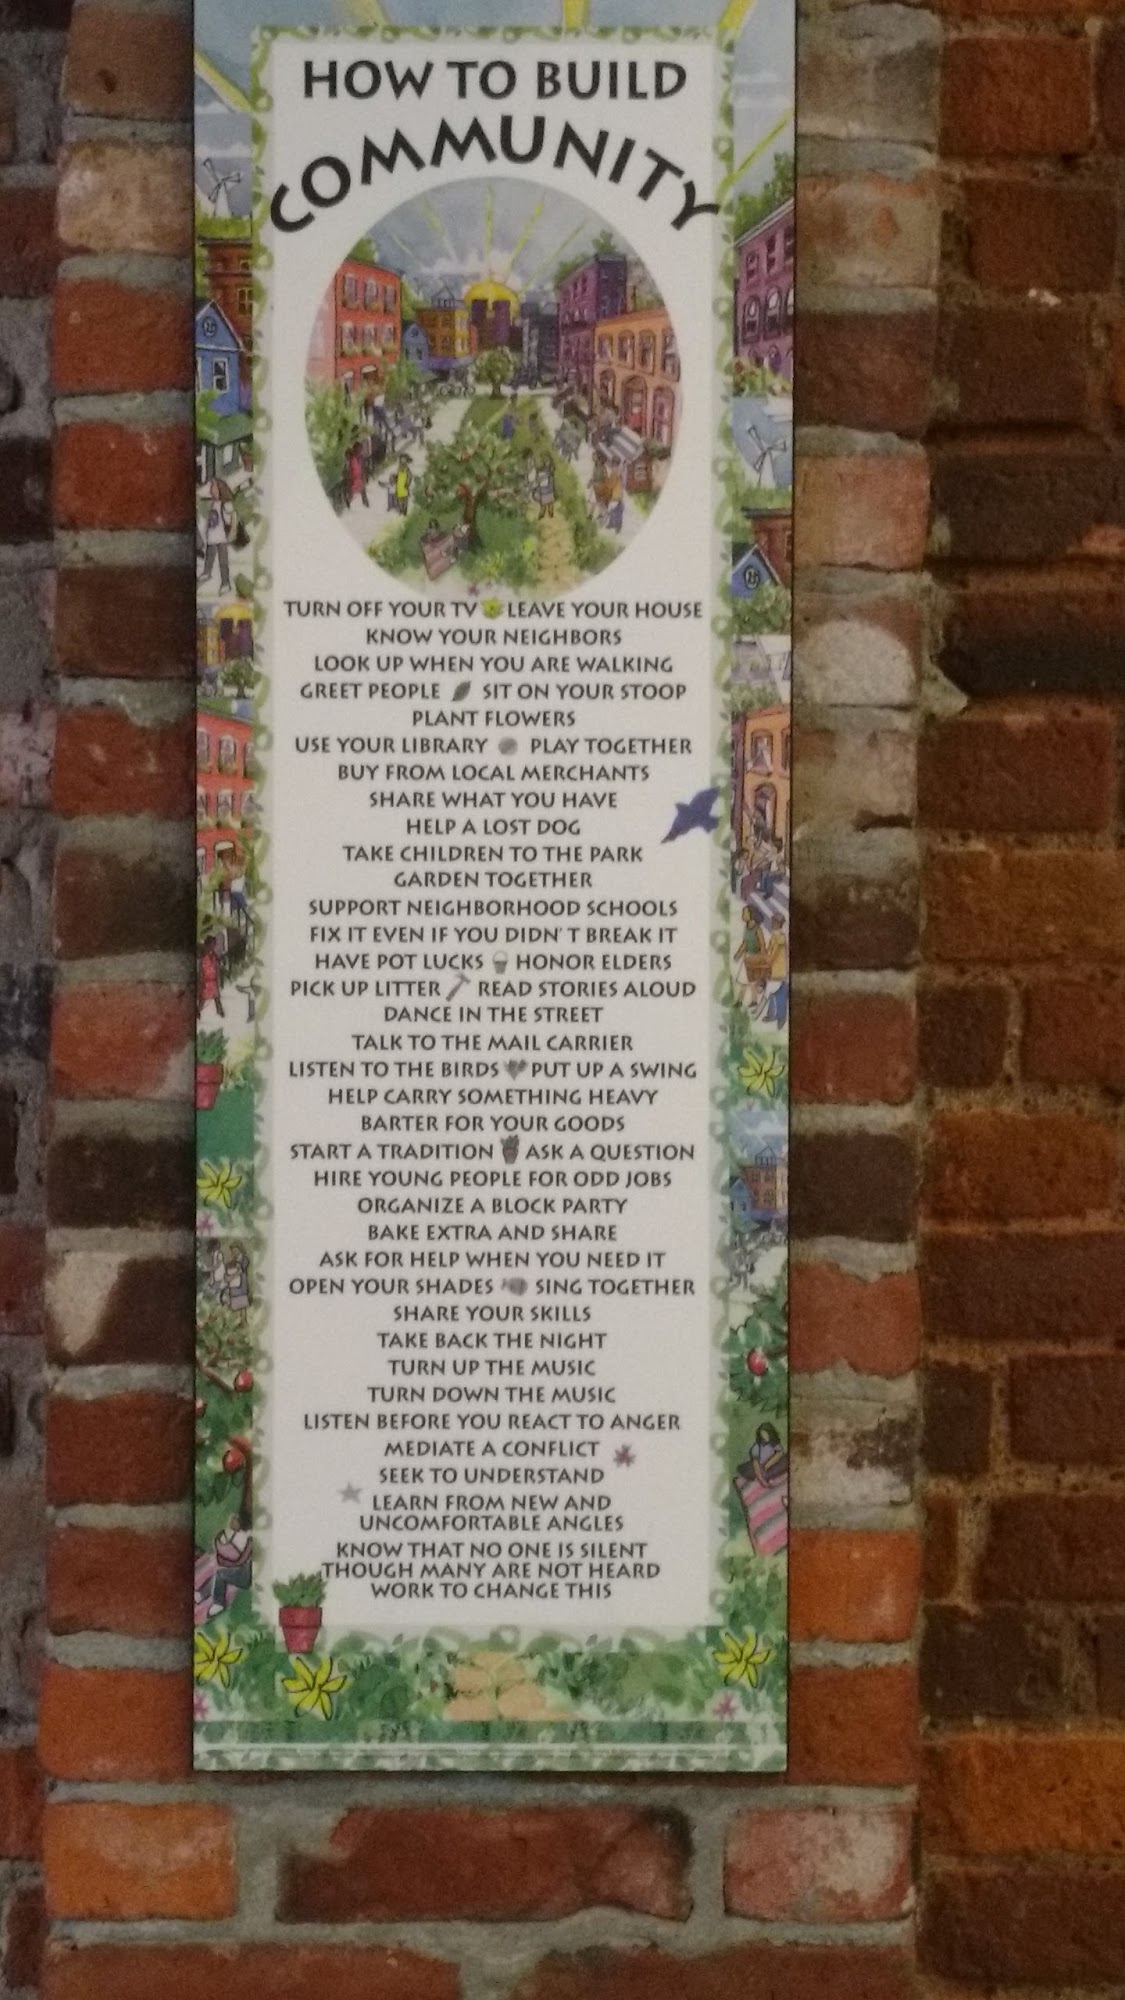 HOW TO BUILD
COMMUNITY
TURN OFF YOUR TV LEAVE YOUR HOUSE
KNOW YOUR NEIGHBORS
LOOK UP WHEN YOU ARE WALKING
GREET PEOPLE SIT ON YOUR STOOP
PLANT FLOWERS
USE YOUR LIBRARY PLAY TOGETHER
BUY FROM LOCAL MERCHANTS
SHARE WHAT YOU HAVE
HELP A LOST DOG
TAKE CHILDREN TO THE PARK
GARDEN TOGETHER
SUPPORT NEIGHBORHOOD SCHOOLS
FIX IT EVEN IF YOU DIDN'T BREAK IT
HAVE POT LUCKS HONOR ELDERS
PICK UP LITTER READ STORIES ALOUD
DANCE IN THE STREET
TALK TO THE MAIL CARRIER
LISTEN TO THE BIRDS PUT UP A SWING
HELP CARRY SOMETHING HEAVY
BARTER FOR YOUR GOODS
START A TRADITION ASK A QUESTION
HIRE YOUNG PEOPLE FOR ODD JOBS
ORGANIZE A BLOCK PARTY
BAKE EXTRA AND SHARE
ASK FOR HELP WHEN YOU NEED IT
OPEN YOUR SHADES SING TOGETHER
SHARE YOUR SKILLS
TAKE BACK THE NIGHT
TURN UP THE MUSIC
TURN DOWN THE MUSIC
LISTEN BEFORE YOU REACT TO ANGER
MEDIATE A CONFLICT
SEEK TO UNDERSTAND
LEARN FROM NEW AND
UNCOMFORTABLE ANGLES
KNOW THAT NO ONE IS SILENT
THOUGH MANY ARE NOT HEARD
WORK TO CHANGE THIS